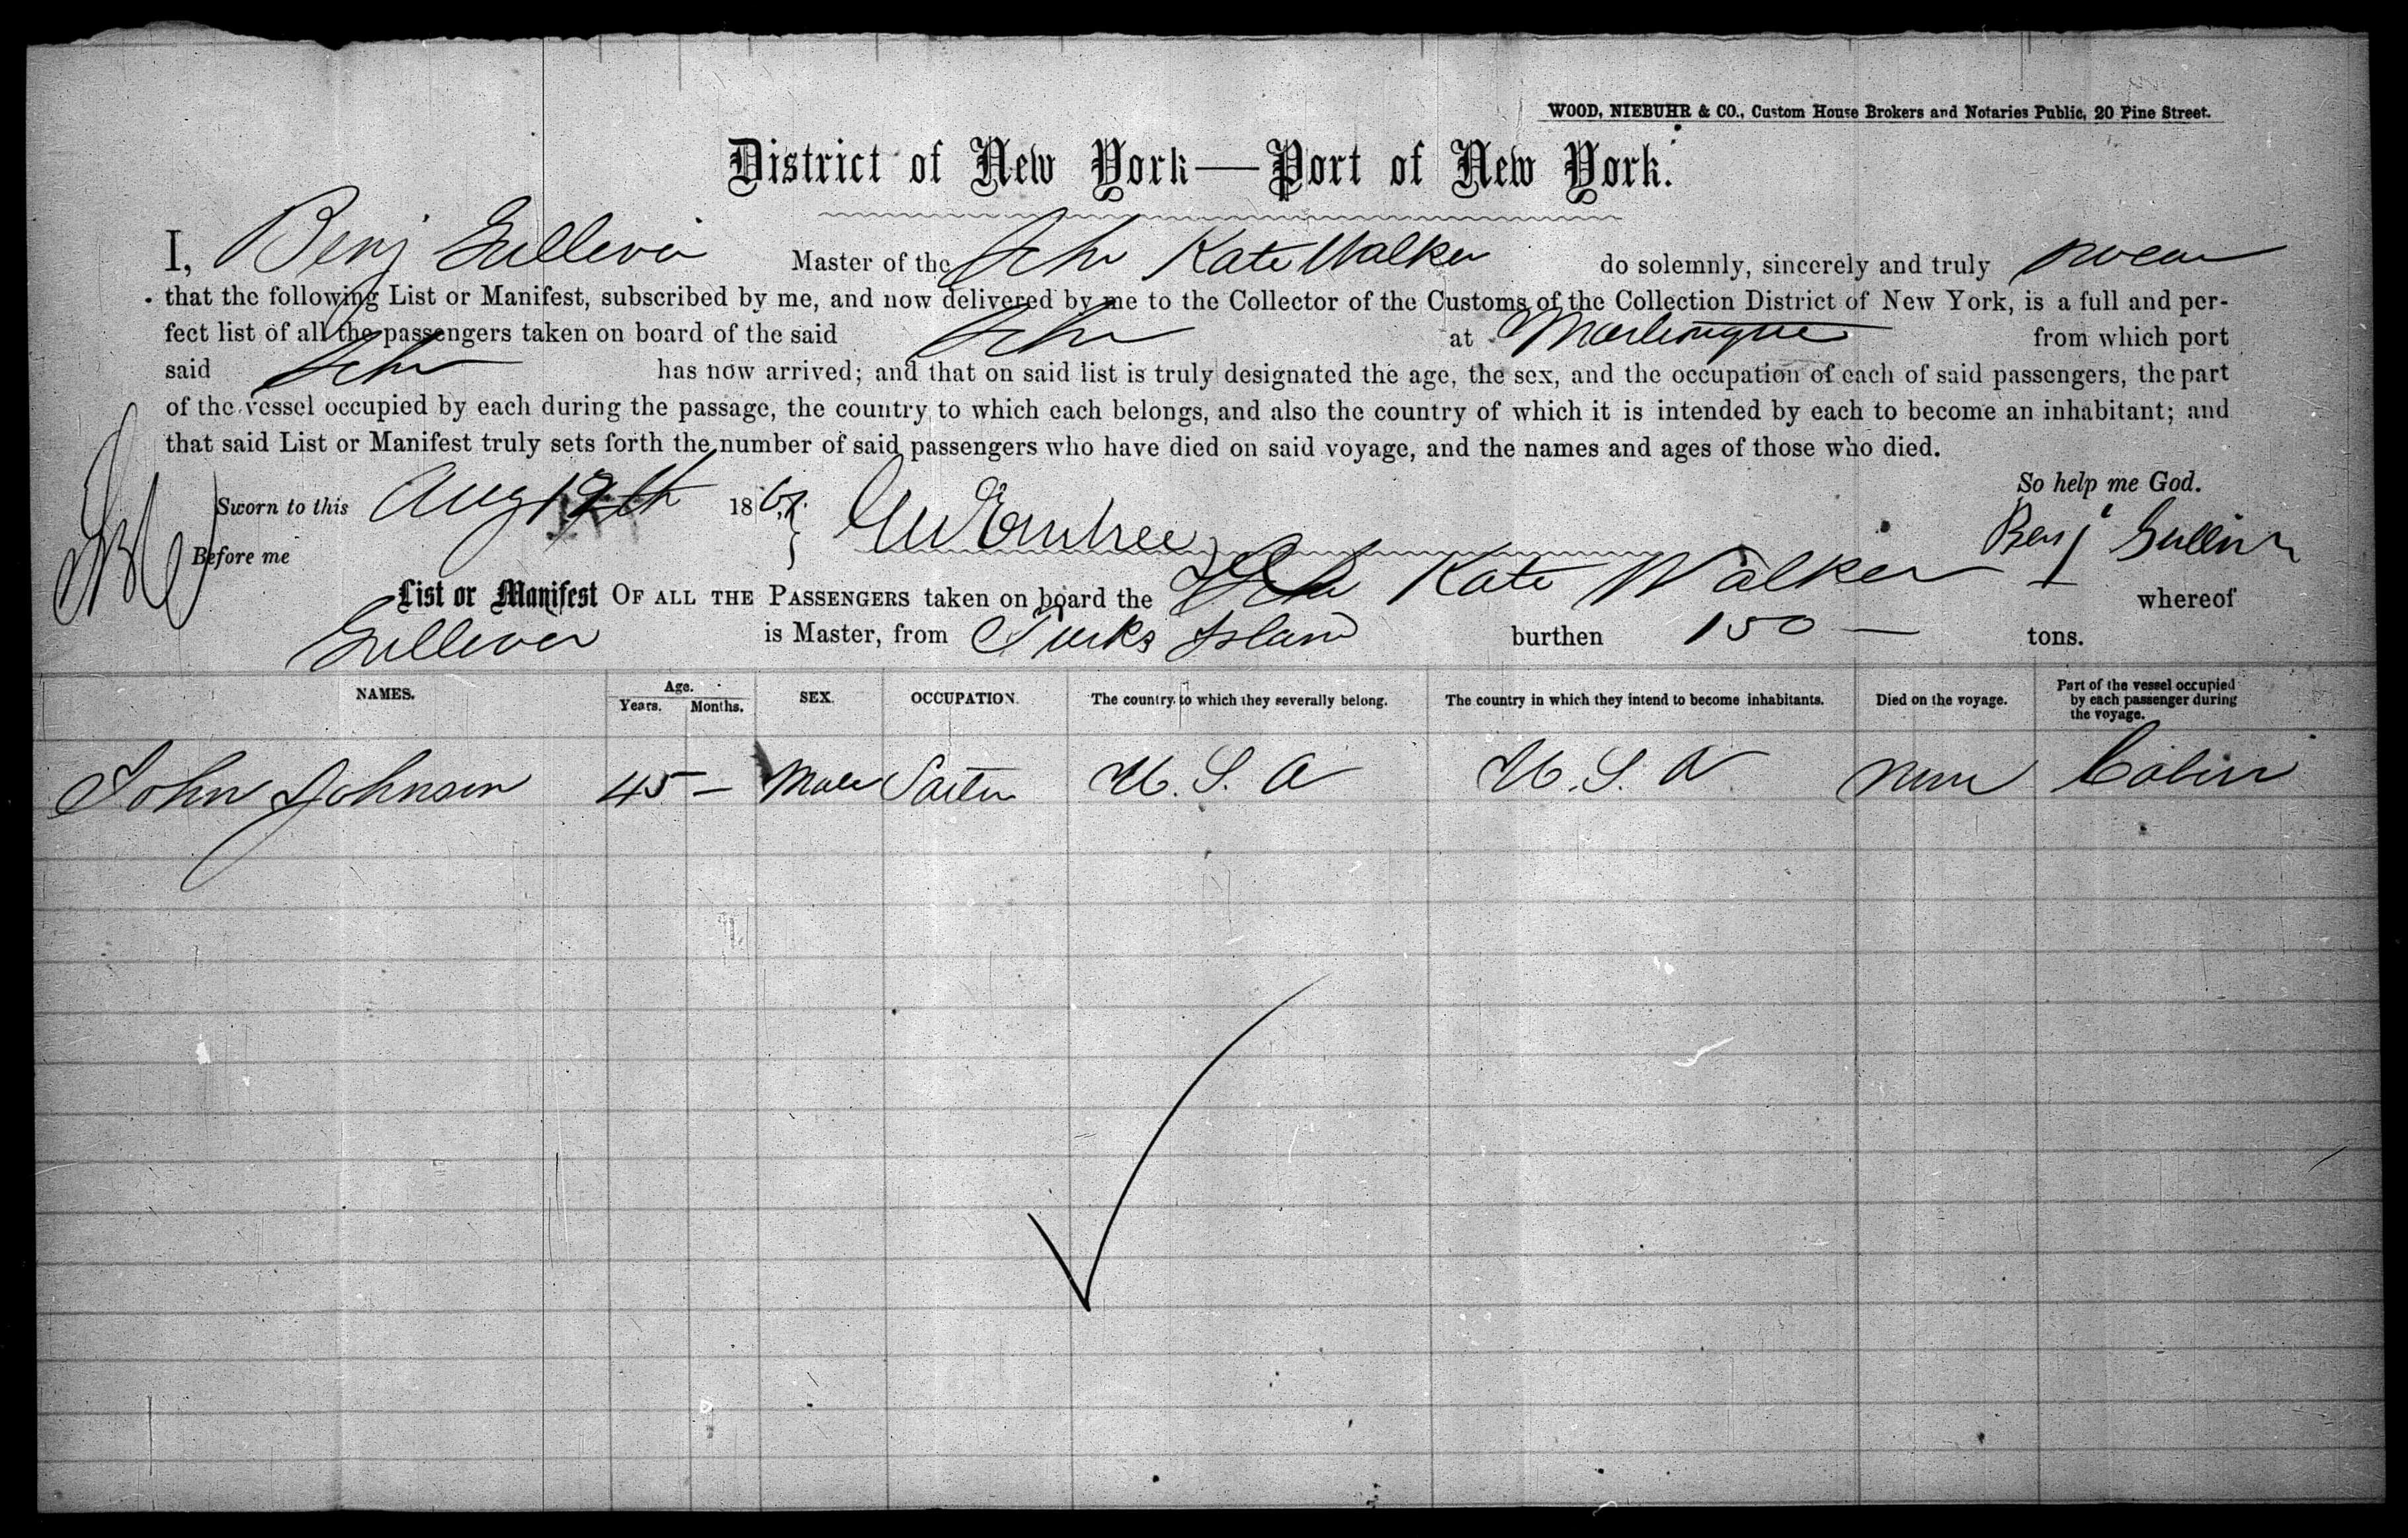 WOOD, NIEBUHR & CO., Custom House Brokers and Notaries Public, 20 Pine Street.
District of New York—Port of New York.
I, Benj Gulliver Master of the Schr Kate Walker do solemnly, sincerely and truly swear
that the following List or Manifest, subscribed by me, and now delivered by me to the Collector of the Customs of the Collection District of New York, is a full and per-
fect list of all the passengers taken on board of the said Schr at Martinique from which port
said Schr has now arrived; and that on said list is truly designated the age, the sex, and the occupation of each of said passengers, the part
of the vessel occupied by each during the passage, the country to which each belongs, and also the country of which it is intended by each to become an inhabitant; and
that said List or Manifest truly sets forth the number of said passengers who have died on said voyage, and the names and ages of those who died.
So help me God.
Sworn to this Aug 186
Before me
Benj Gulliver
List or Manifest OF ALL THE PASSENGERS taken on board the Schr Kate Walker whereof
Gulliver is Master, from Turks Island burthen 150 — tons.
NAMES. Age. Years. Months. SEX. OCCUPATION. The country to which they severally belong. The country in which they intend to become inhabitants. Died on the voyage. Part of the vessel occupied by each passenger during the voyage.
John Johnson 45 — Male U. S. A U. S. A None Cabin